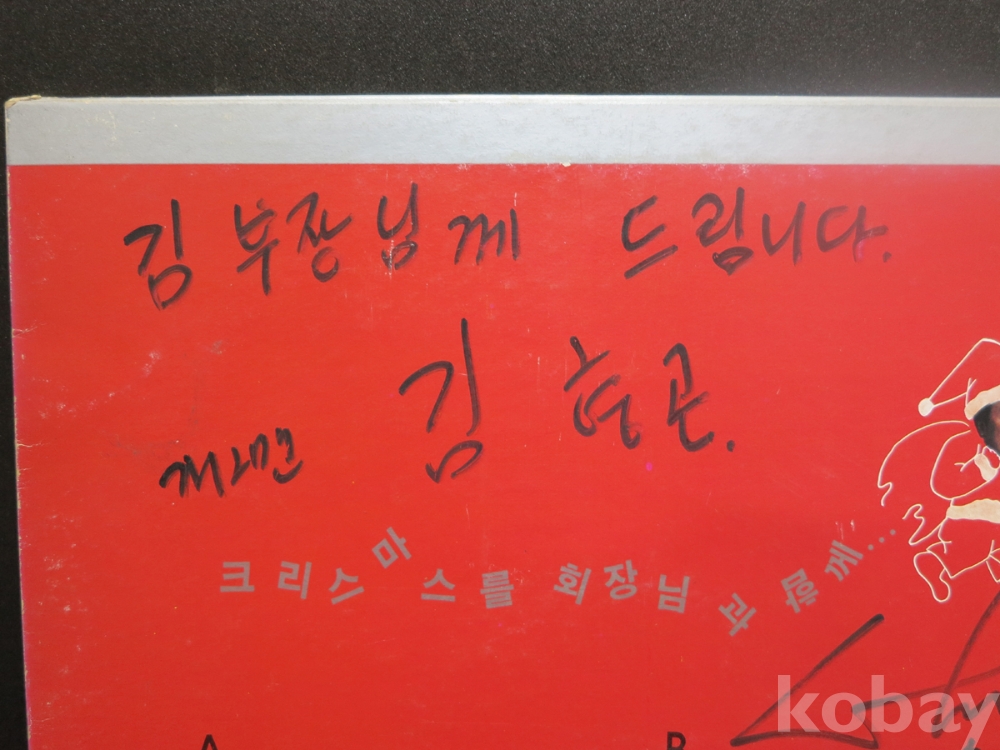 김 부장님께 드림니다.
개그맨 김 형곤.
크리스마스를 회장님과 함께...
A B
kobay